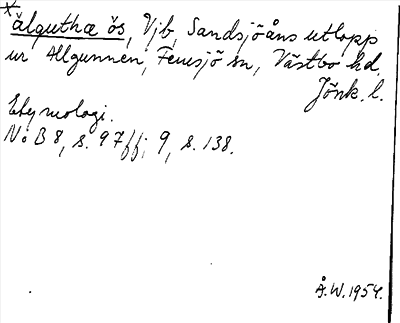 *älguthæ ös, Vjb, Sandsjöåns utlopp
ur Allgunnen, Femsjö sn, Västbo hd,
Jönk. l.
Etymologi.
NoB 8, s. 97 ff; 9, s. 138.
Å.W. 1954.